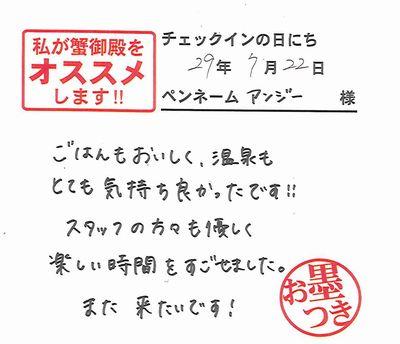 私が蟹御殿を
オススメ
します!!
チェックインの日にち
29年 7月 22日
ペンネーム アンジー 様
ごはんもおいしく、温泉も
とても気持ち良かったです!!
スタッフの方々も優しく
楽しい時間をすごせました。
また 来たいです!
お墨つき